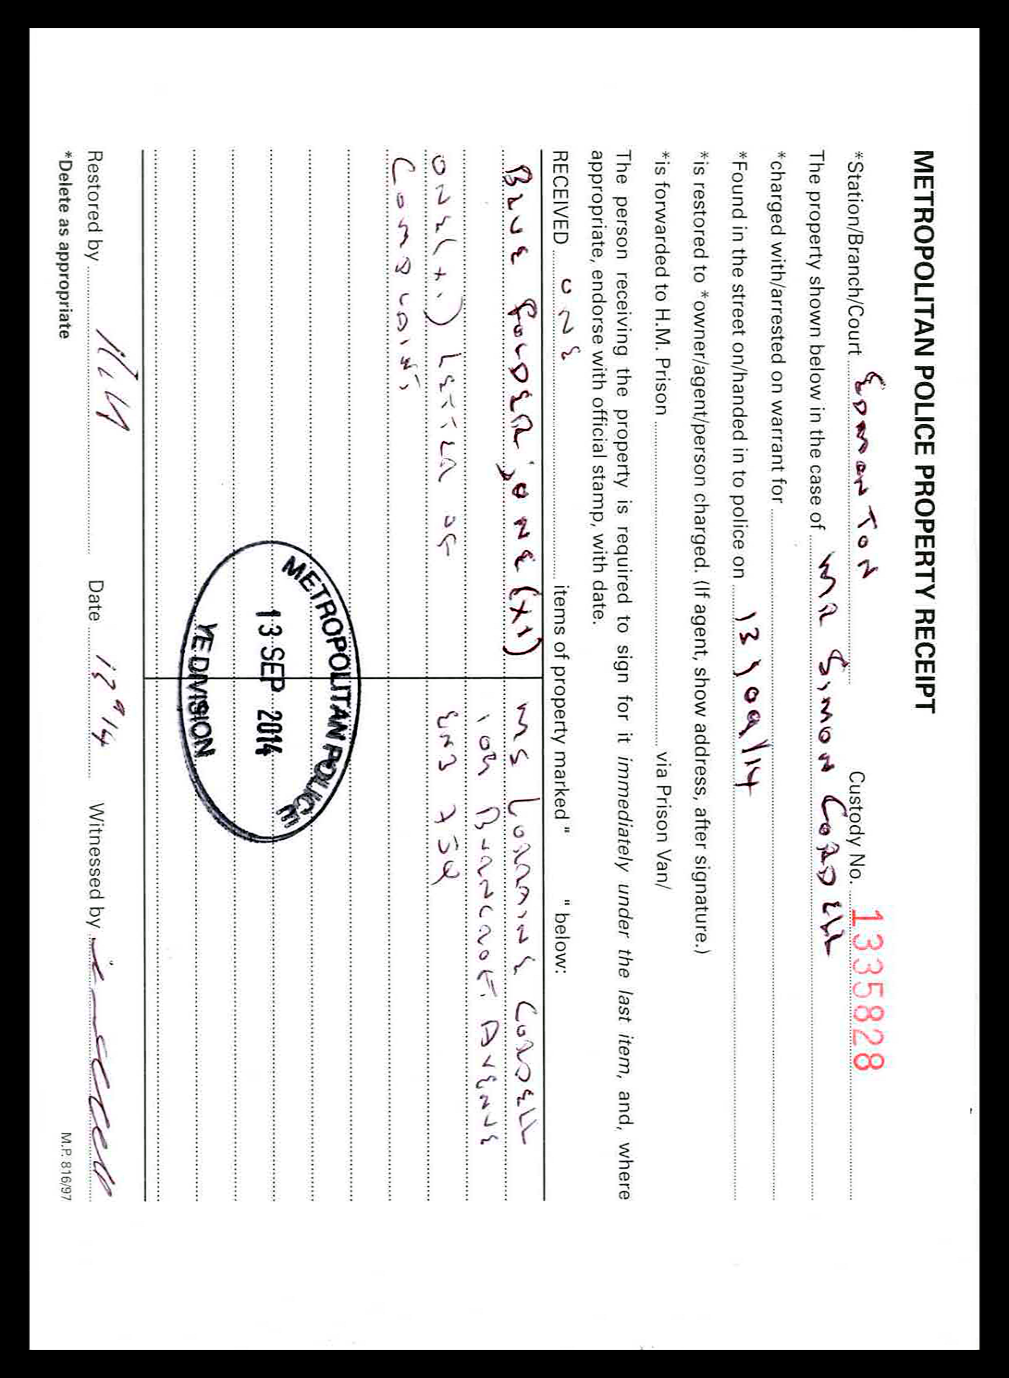 METROPOLITAN POLICE PROPERTY RECEIPT
*Station/Branch/Court EDMONTON Custody No. 1335828
The property shown below in the case of MR SIMON CORDELL
*charged with/arrested on warrant for
*Found in the street on/handed in to police on 13/09/14
*is restored to *owner/agent/person charged. (If agent, show address, after signature.)
*is forwarded to H.M. Prison via Prison Van/
The person receiving the property is required to sign for it immediately under the last item, and, where
appropriate, endorse with official stamp, with date.
RECEIVED ONE items of property marked " " below:
BLUE FOLDER, ONE (X1) MS LORRAINE CORDELL
109 BURNCROFT AVENUE
ONE (X1) LETTER OF EN3
COMPLAINT
METROPOLITAN POLICE
13 SEP 2014
YE DIVISION
Restored by Date 13 9 14 Witnessed by
*Delete as appropriate M.P. 816/97